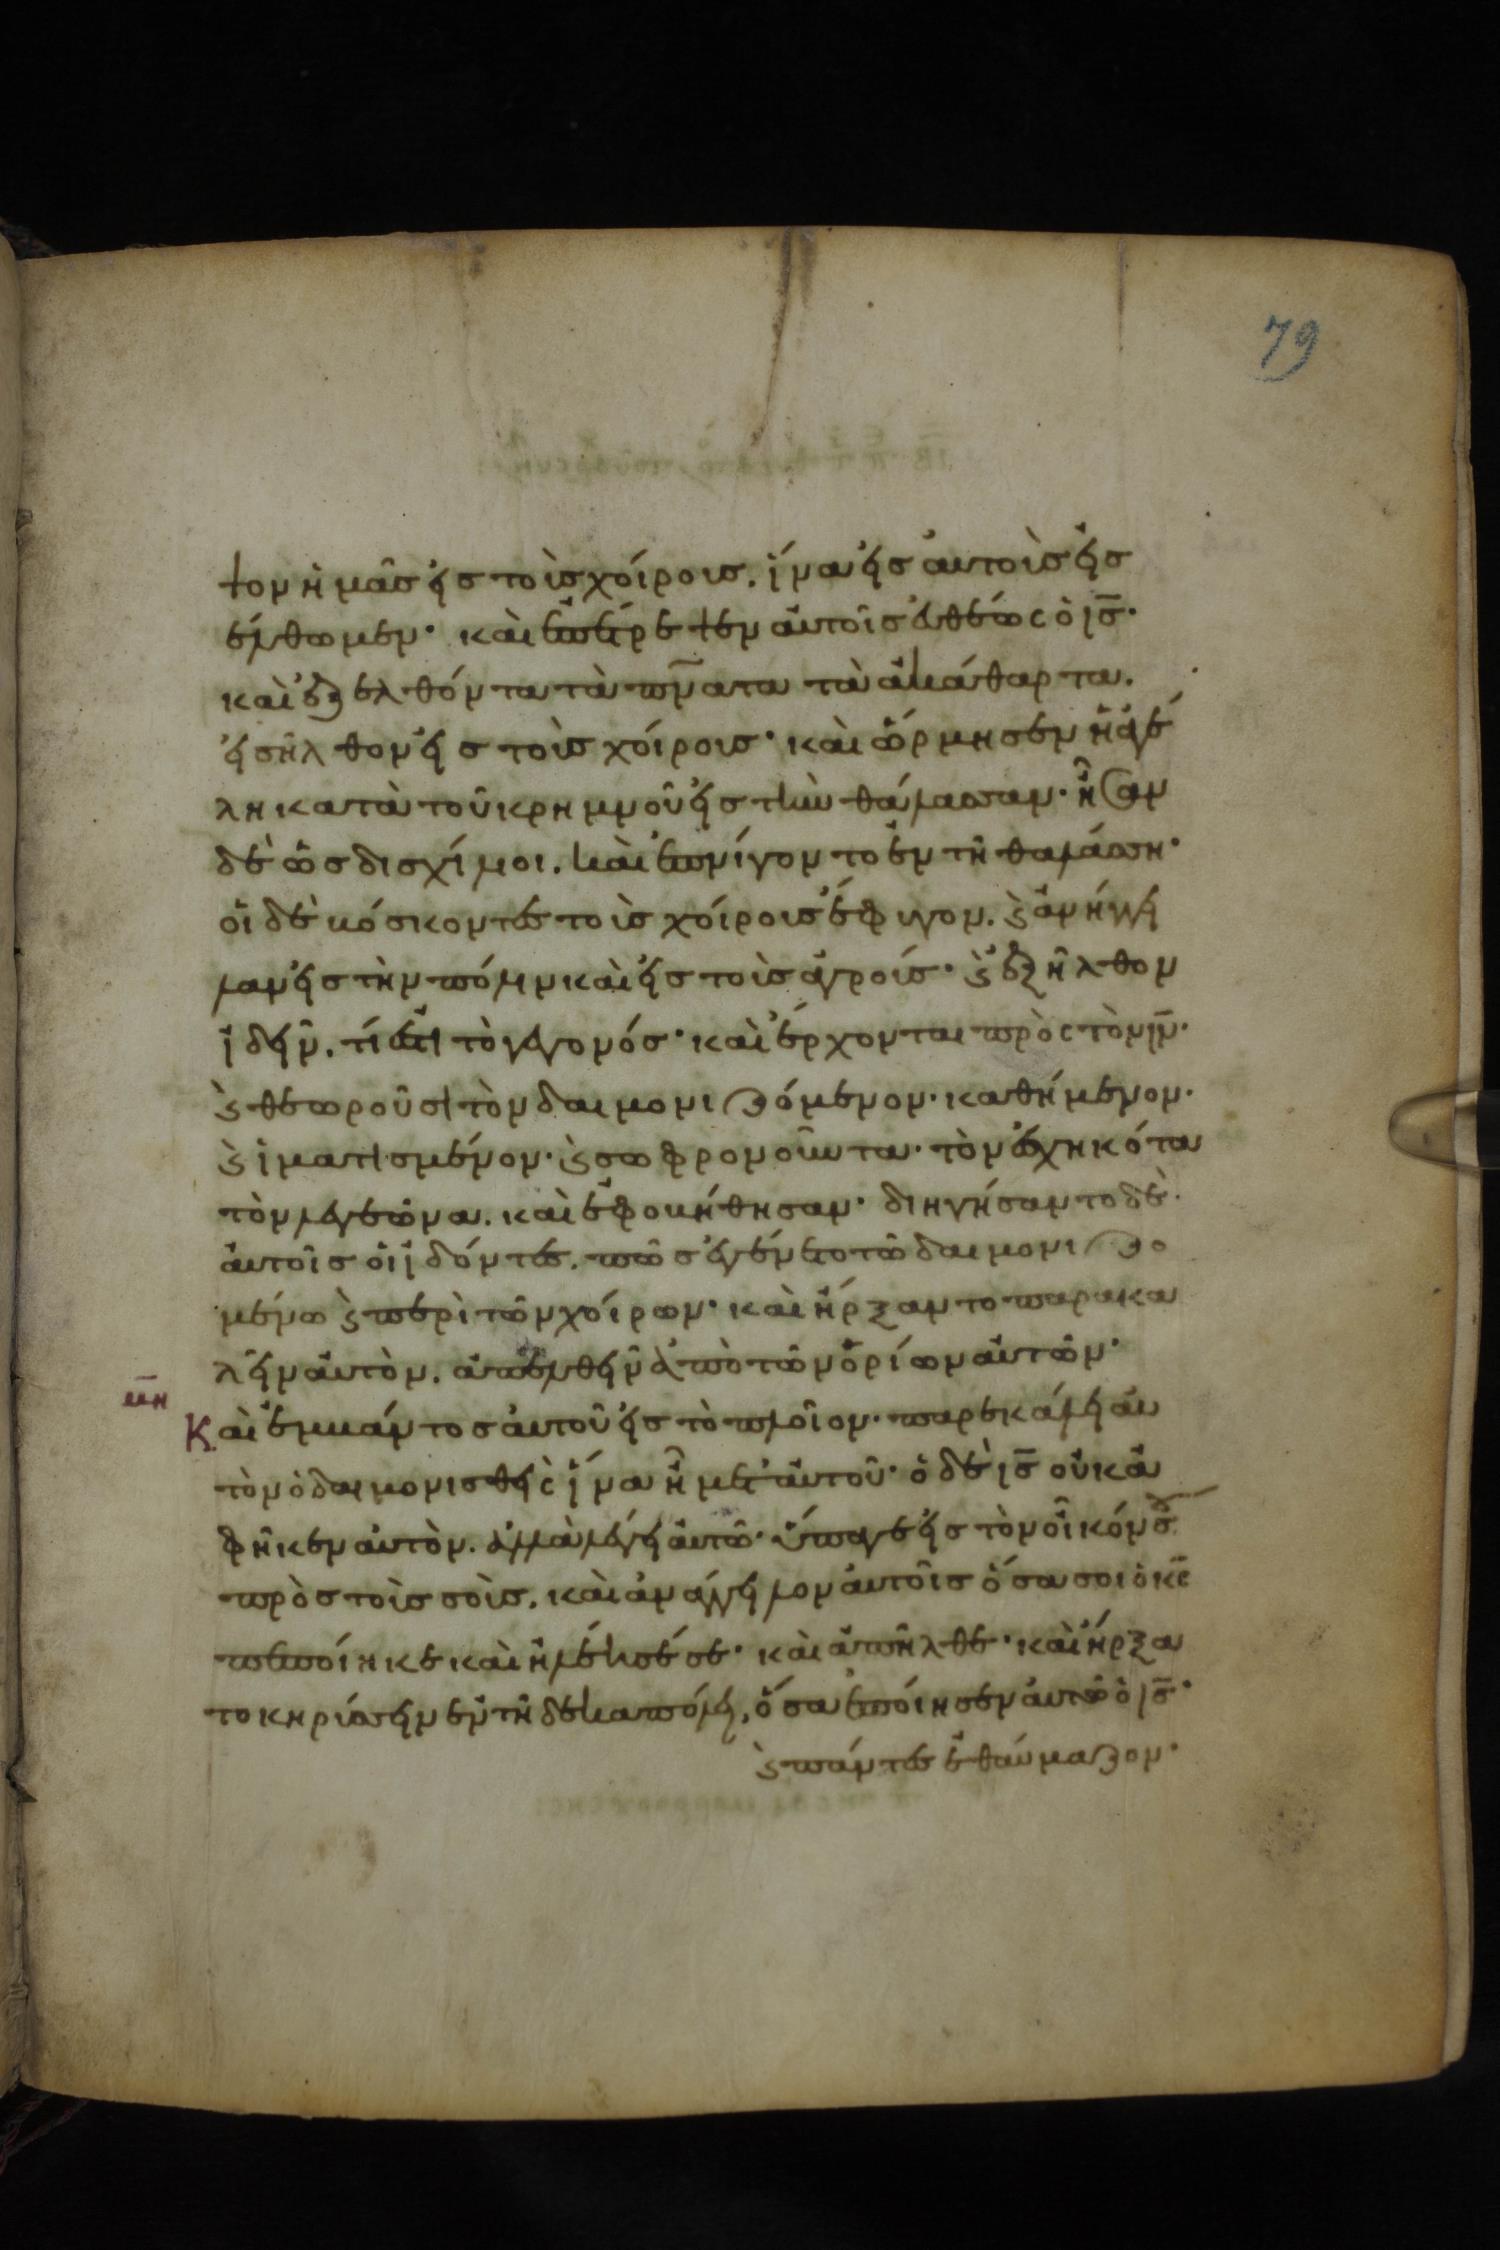 79
ψον ἡμᾶσ εἰσ τοὺσ χοίρουσ. ἵνα εἰσ αὐτοὺσ εἰσ
έλθωμεν· καὶ ἐπέτρεψεν αὐτοῖσ εὐθέως ὁ ι̅σ̅·
καὶ ἐξελθόντα τὰ πν̅ατα τὰ ἀκάθαρτα.
εἰσῆλθον εἰσ τοὺσ χοίρουσ· καὶ ὥρμησεν ἡ ἀγέ
λη κατὰ τοῦ κρημνοῦ εἰσ τὴν θάλασσαν· ἦσαν
δὲ ὡσ δισχίλιοι. καὶ ἐπνίγοντο ἐν τῆ θαλάσση·
οἱ δὲ βόσκοντεσ τοὺσ χοίρουσ ἔφυγον. ϗ ἀνήγγει
λαν εἰσ τὴν πόλιν καὶ εἰσ τοὺσ ἀγρούσ· ϗ ἐξῆλθον
ἰδεῖν. τί ἐστι τὸ γεγονόσ· καὶ ἔρχονται πρὸς τὸν ι̅ν̅·
ϗ θεωροῦσι τὸν δαιμονιζόμενον· καθήμενον·
ϗ ἱματισμένον· ϗ σωφρονοῦντα· τὸν ἐσχηκότα
τὸν λεγεῶνα. καὶ ἐφοβήθησαν· διηγήσαντο δὲ
αὐτοῖσ οἱ ἰδόντεσ. πῶσ ἐγένετο τῶ δαιμονιζο
μένω ϗ περὶ τῶν χοίρων· καὶ ἤρξαντο παρακα
λεῖν αὐτὸν. ἀπελθεῖν ἀπὸ τῶν ὁρίων αὐτῶν·
μ̅η̅
Καὶ ἐμβάντοσ αὐτοῦ εἰσ τὸ πλοῖον· παρεκάλει αὐ
τὸν ὁ δαιμονισθεὶς ἵνα ἦ μετ' αὐτοῦ· ὁ δὲ ι̅σ̅ οὐκ ἀ
φῆκεν αὐτὸν. ἀλλὰ λέγει αὐτῶ· ὕπαγε εἰσ τὸν οἶκόν σου
πρὸσ τοὺσ σοὺσ. καὶ ἀνάγγειλον αὐτοῖσ ὅσα σοι ὁ κ̅ς̅
πεποίηκε καὶ ἠλέησέ σε· καὶ ἀπῆλθε· καὶ ἤρξα
το κηρύσσειν ἐν τῆ δεκαπόλει, ὅσα ἐποίησεν αὐτῶ ὁ ι̅σ̅·
ϗ πάντεσ ἐθαύμαζον·